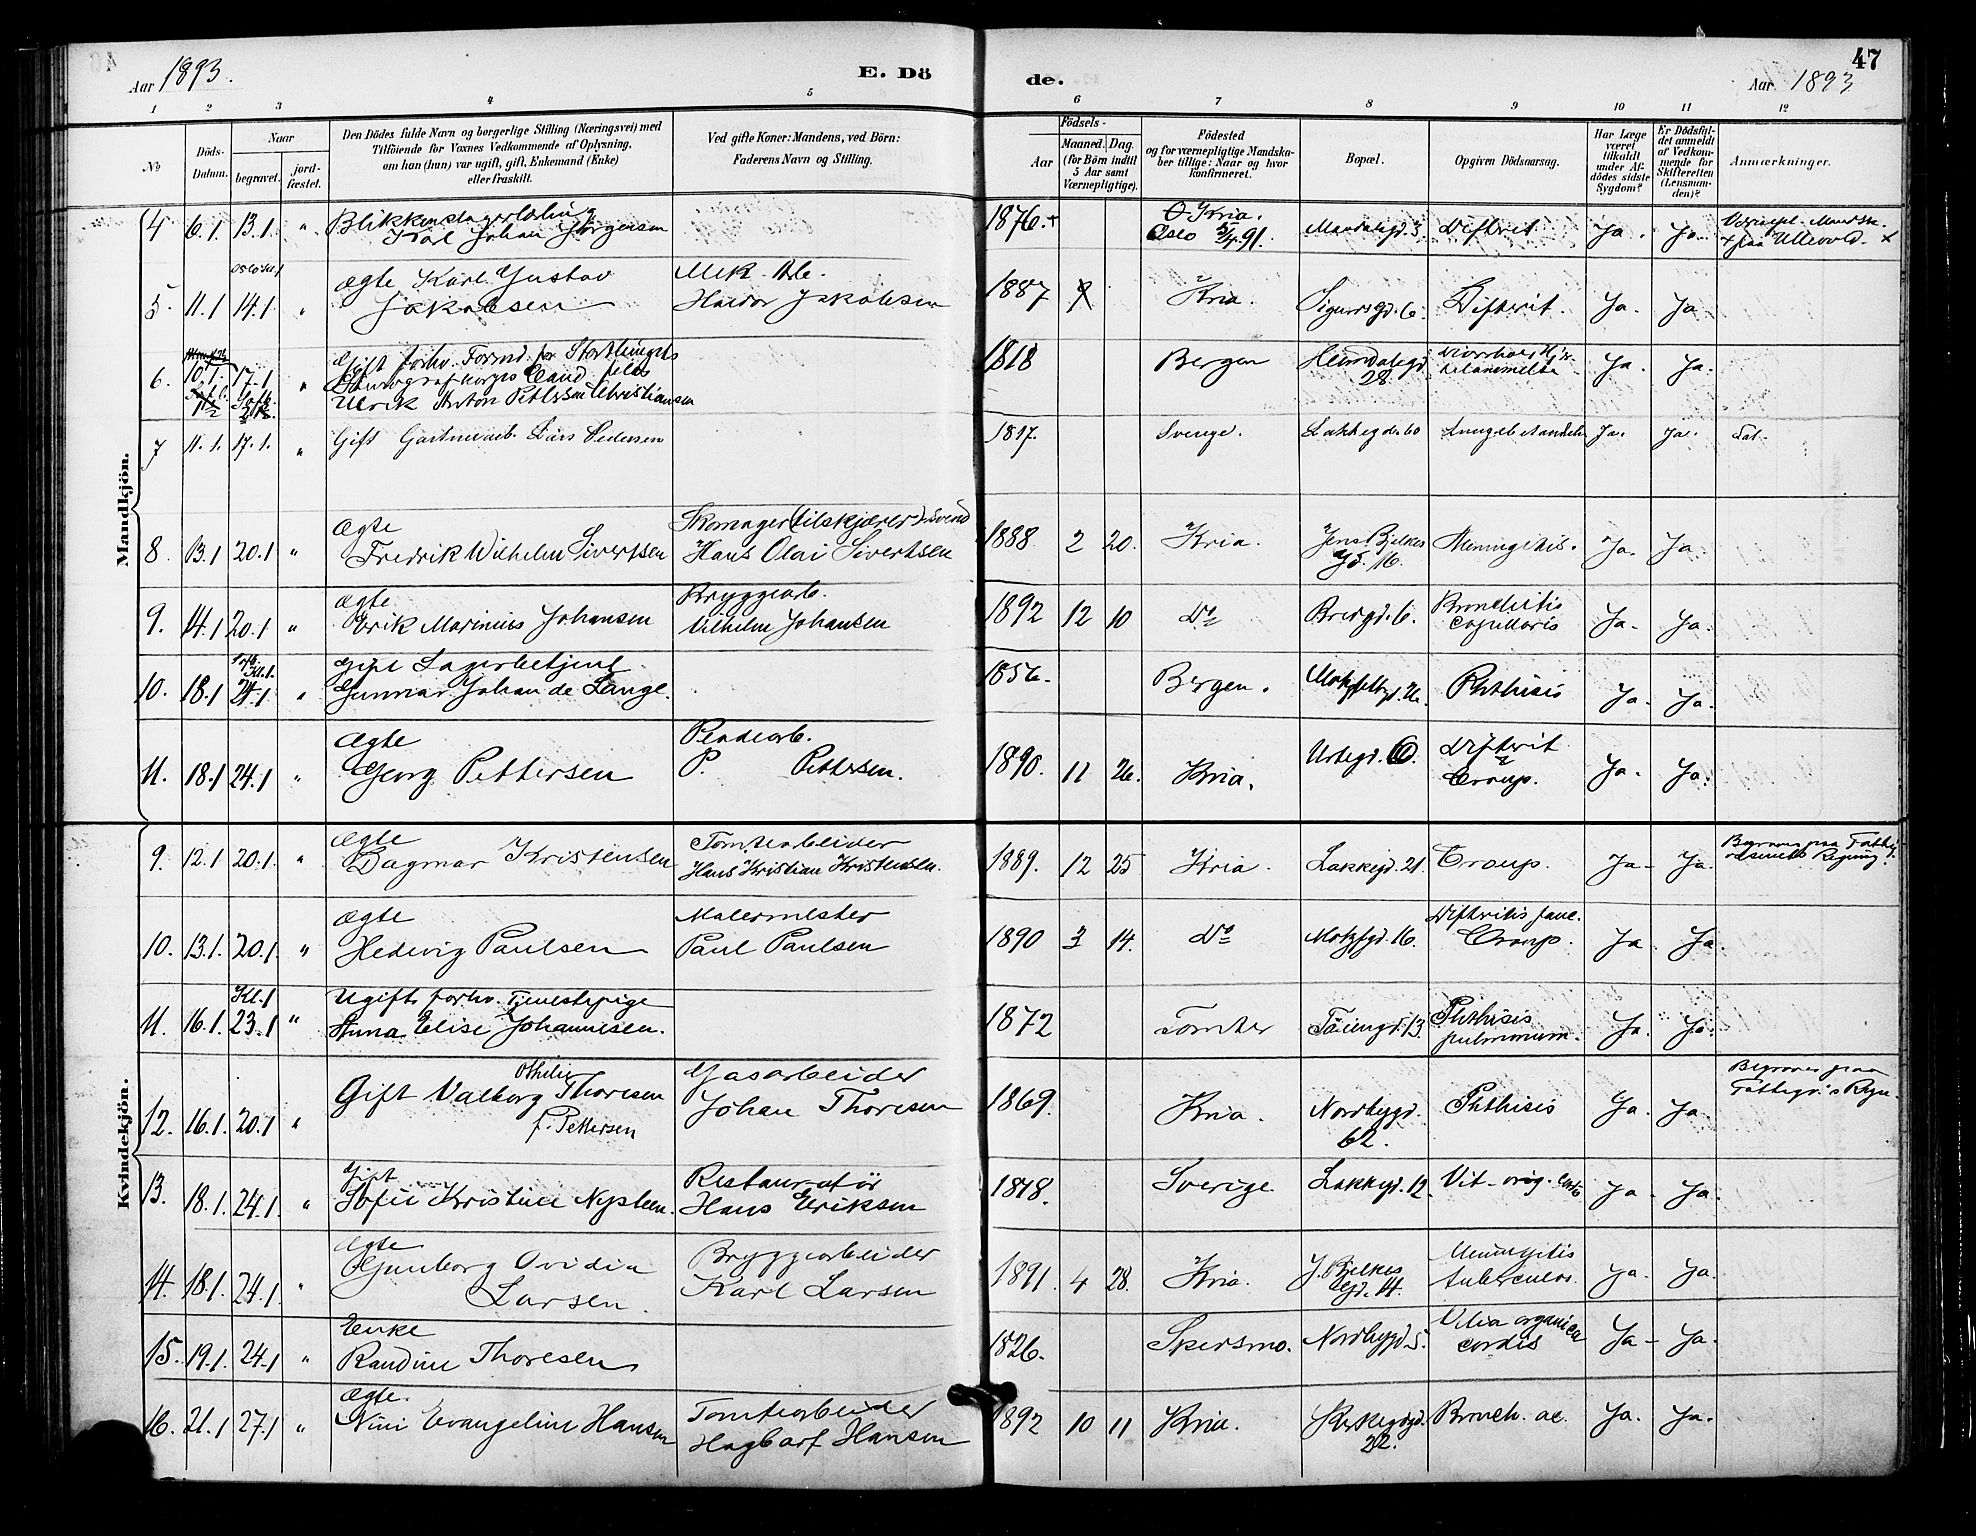 Aar 1893.
E. Dö
de.
47
Aar 1893
1 2 3 4 5 6 7 8 9 10 11 12
No
Döds-Datum.
Naar
begravet.
jord-fæstet.
Den Dödes fulde Navn og borgerlige Stilling (Næringsvei) med
Tilföiende for Voxnes Vedkommende af Oplysning,
om han (hun) var ugift, gift, Enkemand (Enke)
eller fraskilt.
Ved gifte Koner: Mandens, ved Börn:
Faderens Navn og Stilling.
Födsels-
Aar
Maaned. Dag.
(for Börn indtil
5 Aar samt
Værnepligtige).
Födested
og for værnepligtige Mandska-
ber tillige: Naar og hvor
konfirmeret.
Bopæl.
Opgiven Dödsaarsag.
Har Læge
været
tilkaldt
under Af-
dödes sidste
Sygdom?
Er Dödsfal-
det anmeldt
af Vedkom-
mende for
Skifteretten
(Lensman-
den)?
Anmærkninger.
Mandkjön.
4 6.1. 13.1 " Blikkenslagerlærling
Karl Johan Jørgensen
1876. + Kria.
Oslo 5/4 91. Difterit Ja. Ja.
+ paa Ullevold. +
5. 11.1 14.1 " Ægte Karl Gustav
Jakobsen
Mek. Arb.
Haldor Jakobsen
1887 Kria. Sigurdsgd. 6. Difterit. Ja. Ja
6. 10.1. 17.1 " Gift forhv. Formd. for Storthingets
Stenografkorps Cand. filos
Ulrik Anton Petersen Christiansen
1818 Bergen Heimdalsgd
28 Ja. Ja.
7 11.1. 17.1. " Gift Gartnerarb. Lars Pedersen
1817. Sverige. Lakkegd. 60 Ja. Ja.
8. 13.1 20.1 " Ægte
Fredrik Wilhelm Sivertsen
Skomager (tilskjærer) svend
Hans Olai Sivertsen
1888 2 20. Kria. Jens Bjelkes
gd. 16. Meningitis. Ja. Ja.
9. 14.1 20.1 " Ægte
Erik Marinius Johansen
Bryggearb.
Vilhelm Johansen
1892 12 10 Do Bredgd. 6. Bronchitis
capillaris Ja. Ja.
10. 18.1 Kl. 1.
24.1 " Gift Lagerbetjent
Gunnar Johan de Lange.
1856. Bergen. Motzfeldtgd. 26. Phthisis Ja. Ja.
11. 18.1 24.1 " Ægte
Georg Pettersen
P. Pettersen.
1890. 11 26. Kria. Urtegd. Difterit
Croup. Ja. Ja.
Kvindekjön.
9. 12.1 20.1 " Ægte
Dagmar Kristensen
Tomtearbeider
Hans Kristian Kristensen.
1889. 12 25 Kria. Lakkegd. 21. Croup. Ja. Ja. Begraves paa Fattig-
væsenets Regning.
10. 13.1. 20.1. " Ægte
Hedevig Paulsen
Malermester
Paul Paulsen
1890 3 14. Do Motzfgd. 16. Difteritis fauc.
Croup. Ja Ja.
11. 16.1. Kl. 1
23.1 " Ugift forhv. Tjenestepige
Anna Elise Johannesen.
1872 Tomter Tøiengd. 13. Phthisis
pulmonum. Ja. Ja.
12. 16.1. 20.1 " Gift Valborg Othilie Thoresen
f. Pettersen
Gasarbeider
Johan Thoresen
1869. Kria. Nordbygd.
62. Phthisis Ja. Ja. Begraves paa
Fattigv.s Regn.
13. 18.1. 24.1. " Gift
Sofie Kristine Nysteen.
Restauratør
Hans Eriksen
1848. Sverige Lakkegd. 12. Vit. org. cord. Ja. Ja.
14. 18.1. 24.1. " Ægte
Gunborg Ovidia
Larsen.
Bryggearbeider
Karl Larsen
1891. 4 28. Kria. J. Bjelkes
gd. 14. Meningitis
tuberculos. Ja. Ja.
15. 19.1. 24.1 " Enke
Randine Thoresen
1826. Skersmo. Nordbygd. 5. Vitia organica
cordis Ja. Ja.
16. 21.1 27.1 " Ægte.
Nini Evangeline Hansen
Tomtearbeider
Hagbart Hansen
1892 10 11 Kria. 22. Bronch. ac. Ja. Ja.